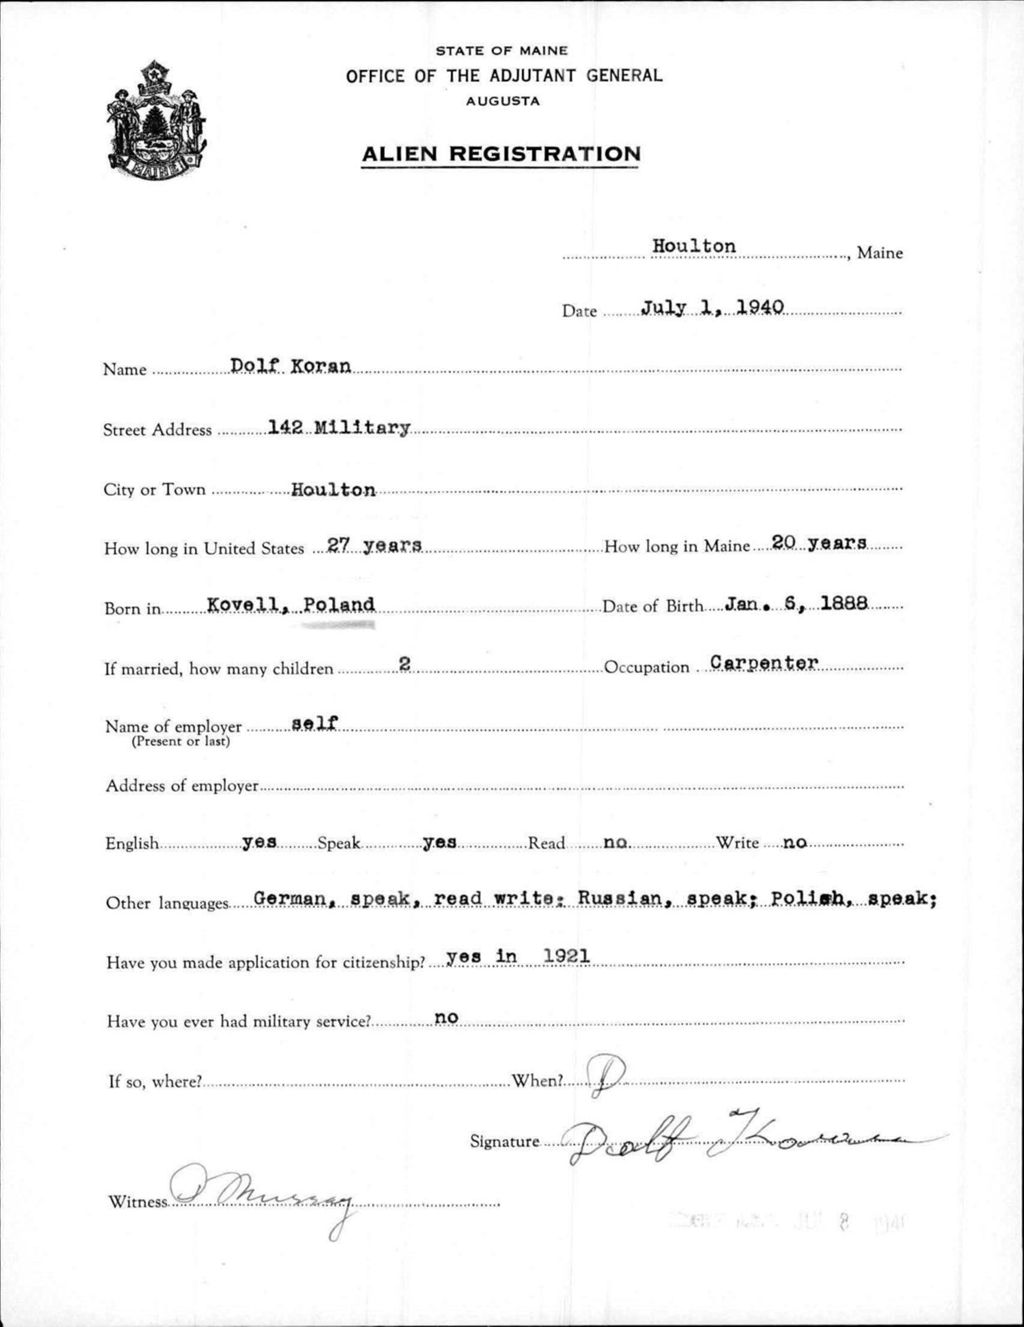 STATE OF MAINE
OFFICE OF THE ADJUTANT GENERAL
AUGUSTA
ALIEN REGISTRATION
MAINE
Houlton, Maine
Date July 1, 1940
Name Dolf Koran
Street Address 142 Military
City or Town Houlton
How long in United States 27 years How long in Maine 20 years
Born in Kovell, Poland Date of Birth Jan. 6, 1888
If married, how many children 2 Occupation Carpenter
Name of employer self
(Present or last)
Address of employer
English yes Speak yes Read no Write no
Other languages German, speak, read write; Russian, speak; Polish, speak;
Have you made application for citizenship? yes in 1921
Have you ever had military service? no
If so, where? When? D
Signature Dolf
Witness Murray
8 1940